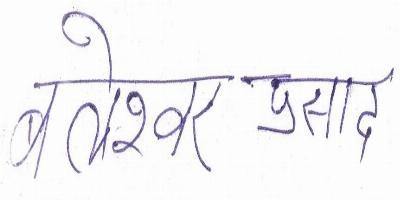 बालेश्वर प्रसाद